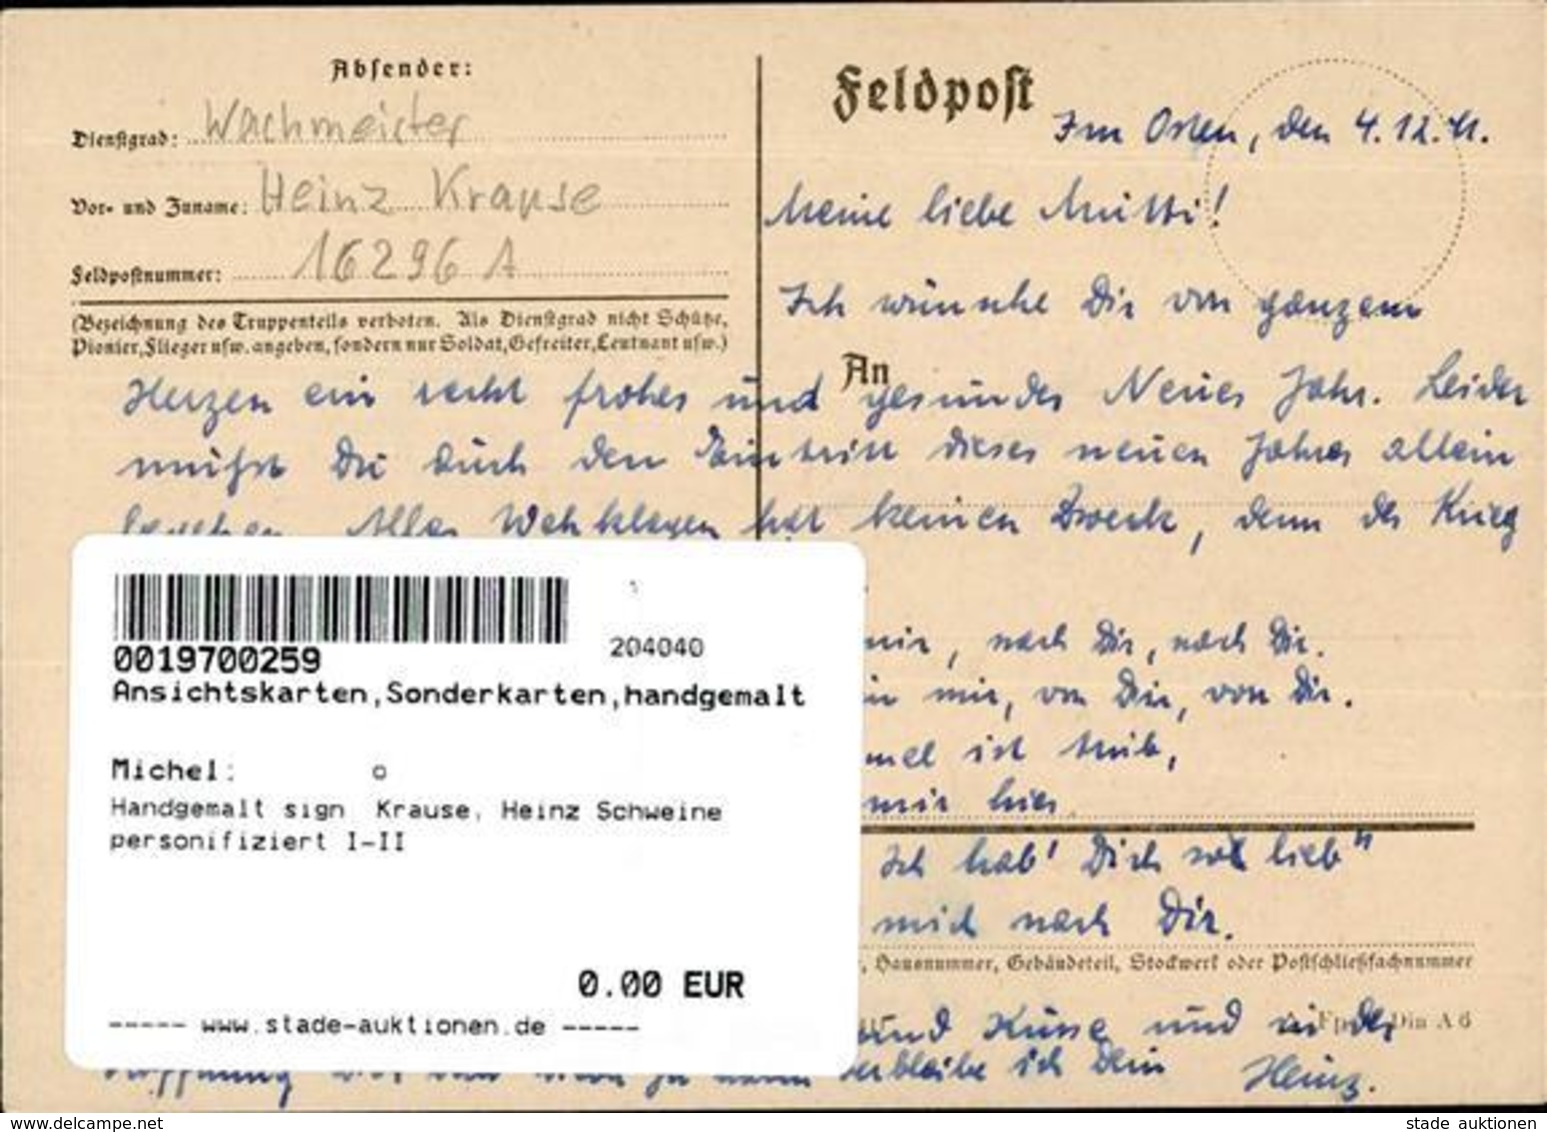 Absender:
Dienstgrad: Wachmeister
Vor- und Zuname: Heinz Krause
Feldpostnummer: 16296 A
(Bezeichnung des Truppenteils verboten. Als Dienstgrad nicht Schütze,
Pionier, Flieger usw. angeben, sondern nur Soldat, Gefreiter, Leutnant usw.)
Feldpost
Im Osten, den 4.12.41.
Meine liebe Mutti!
Ich wünsche Dir von ganzem
An
Herzen ein recht frohes und gesundes Neues Jahr. Leider
mußt Du auch den Eintritt dieses neuen Jahres allein
Alles Wehklagen hat keinen Zweck, denn der Krieg
mir, nach Dir, nach Dir.
mir, von Dir, von Dir.
ist trüb,
mir hier
Ich hab' Dich so lieb"
mich nach Dir.
, Hausnummer, Gebäudeteil, Stockwerk oder Postschließfachnummer
und Küsse und in der
Din A 6
Hoffnung verbleibe ich Dein Heinz.
0019700259
204040
Ansichtskarten,Sonderkarten,handgemalt
Michel: o
Handgemalt sign Krause, Heinz Schweine
personifiziert I-II
0.00 EUR
----- www.stade-auktionen.de -----
www.delcampe.net
stade auktionen